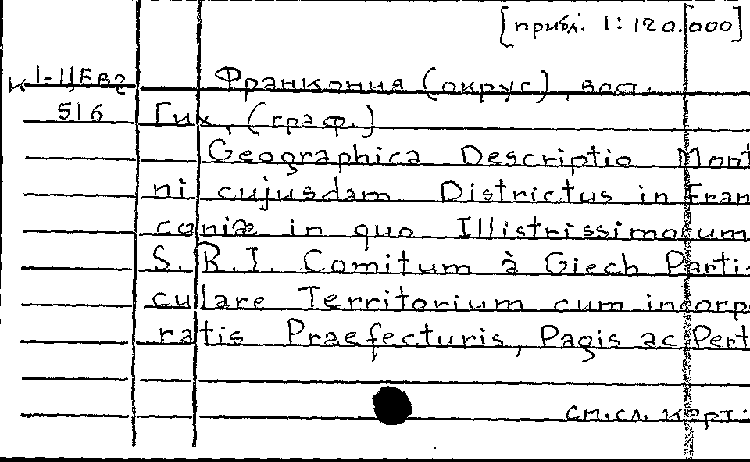 [прибл. 1:120.000]
К 1-ЦЕвг Франкония (округ), вост.
516 Гих, (граф.)
Geographica Descriptio Mont
ni cujusdam Districtus in Fran
coniæ in quo Illistrissimorum
S. R. I. Comitum à Giech Parti
culare Territorium cum incorpo
ratis Praefecturis, Pagis ac Pert
см.сл. карт.